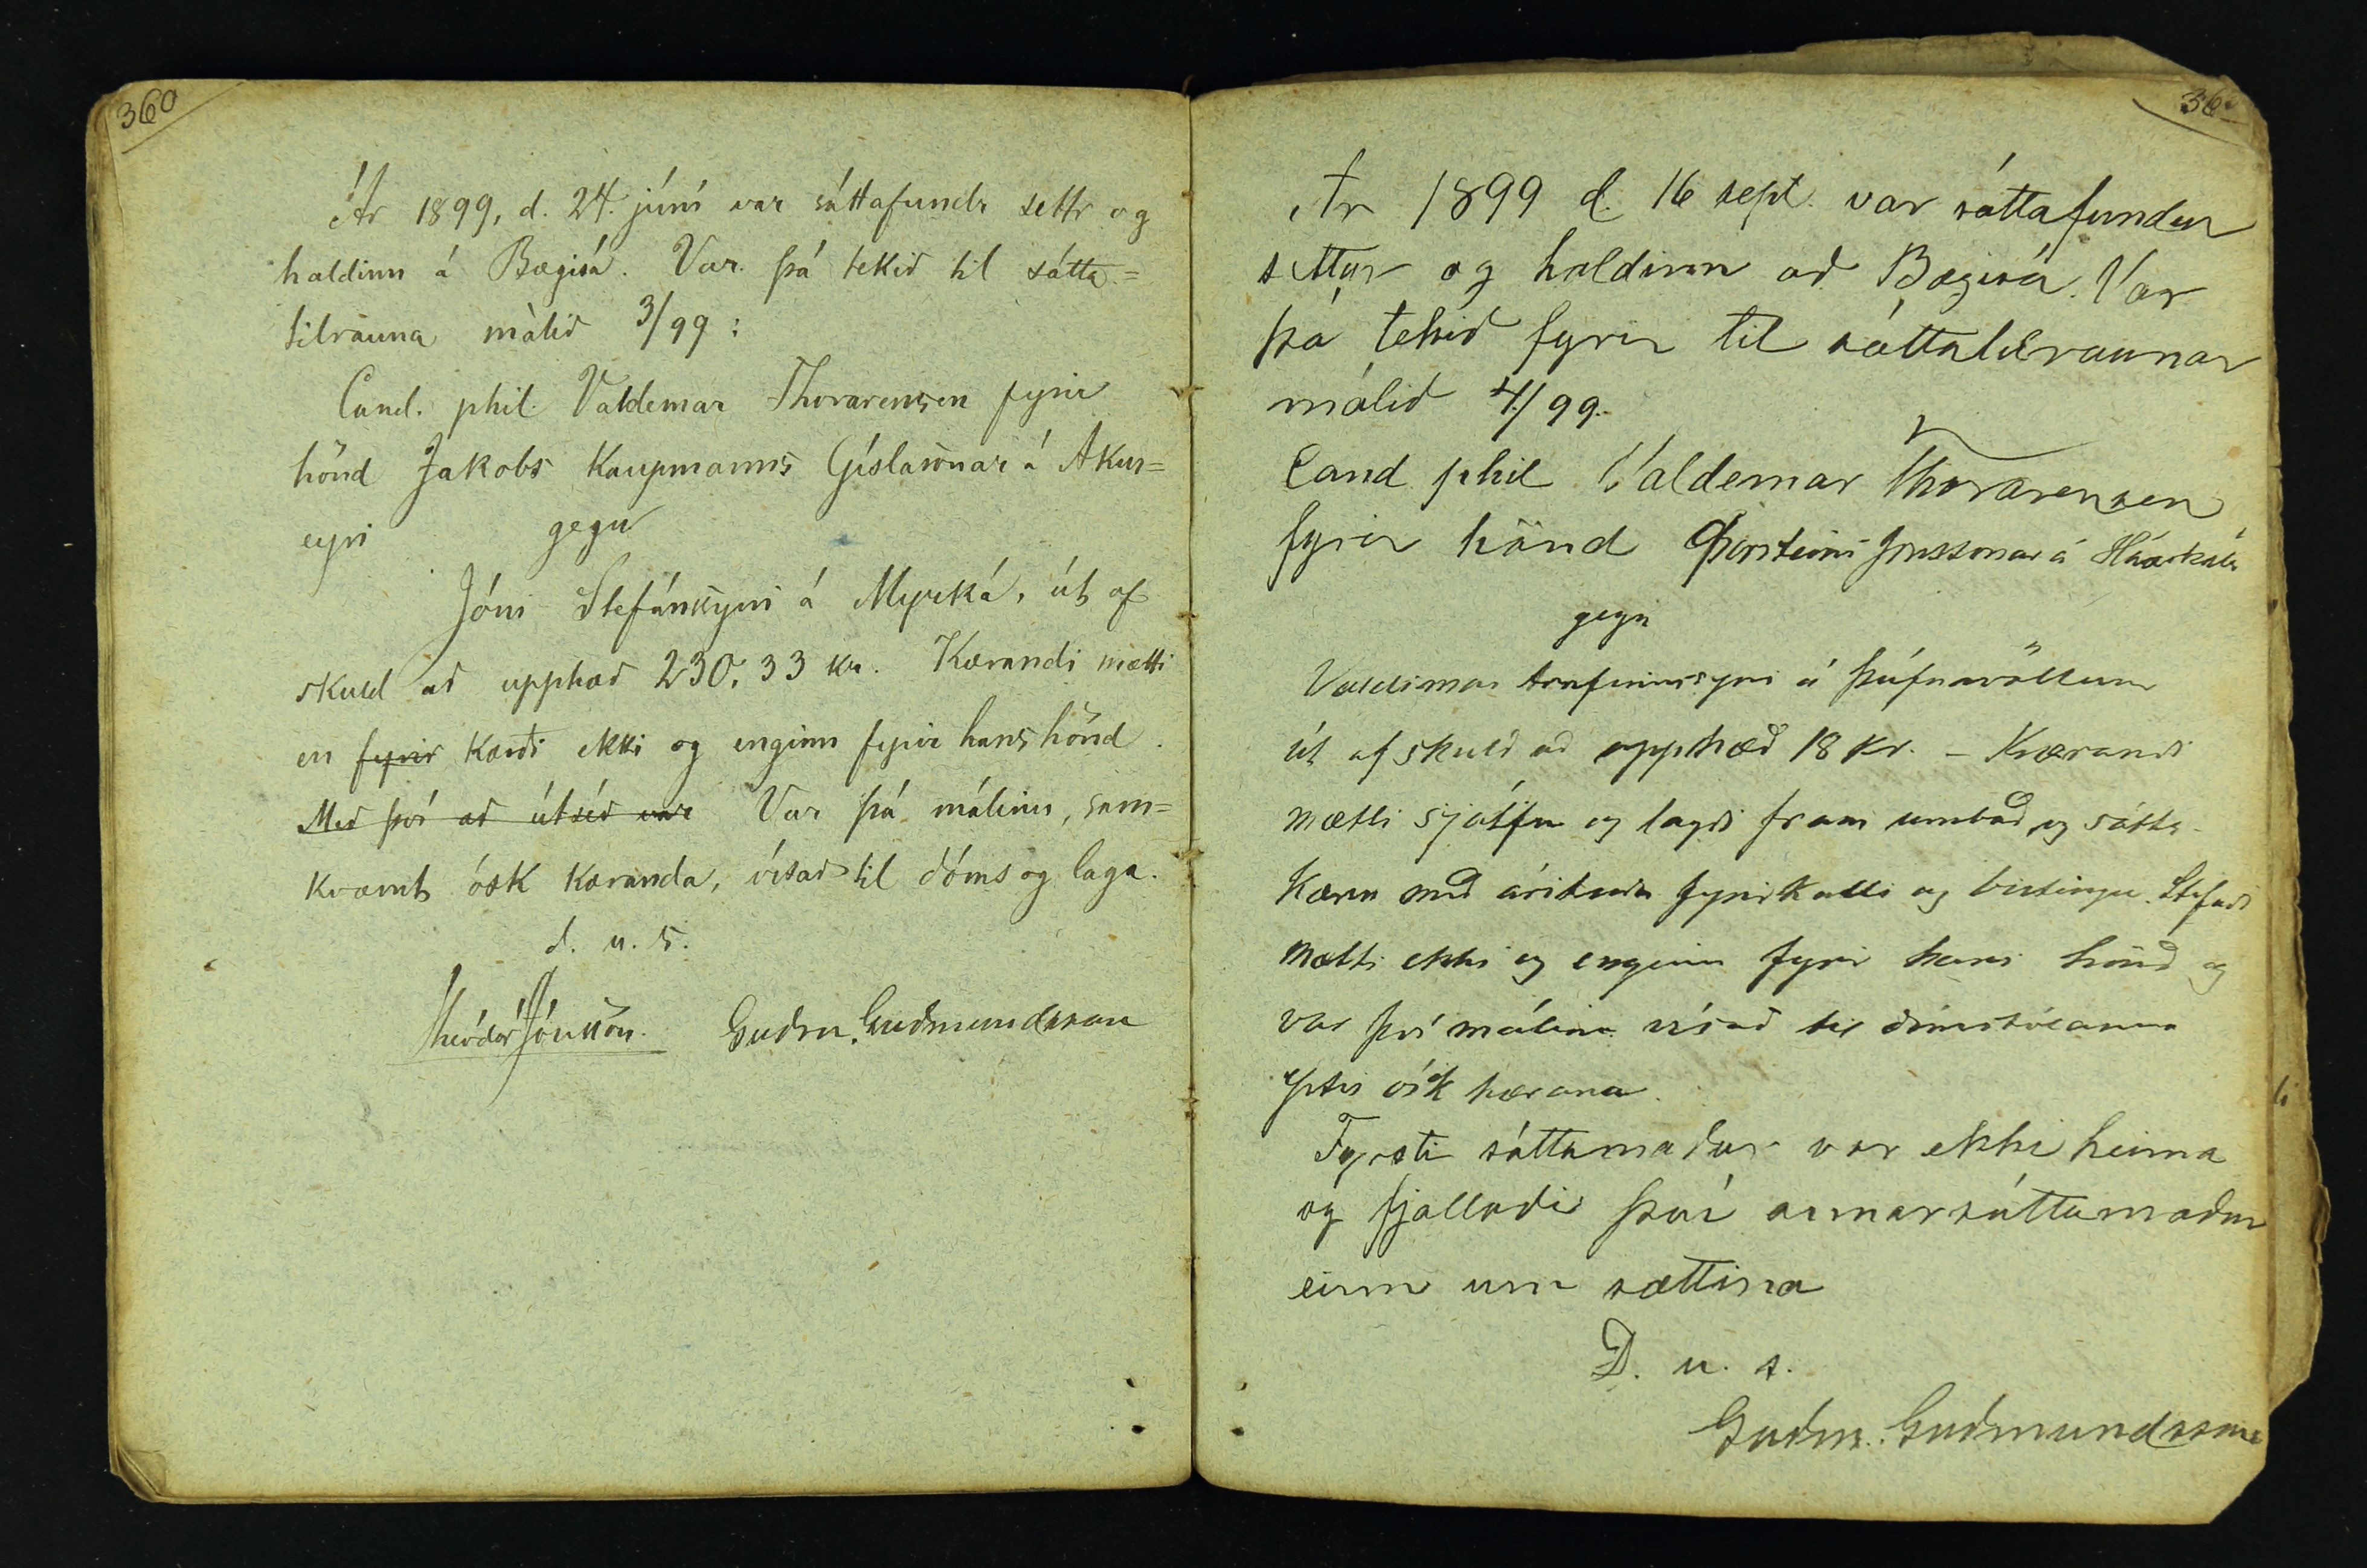 360
Ár 1899, d. 24. júní var sáttafundr settr og
haldinn á Bægisá. Var þá tekið til sátta=
tilrauna málið 3/99:
Cand. phil. Valdemar Thorarensen fyrir
hönd Jakobs kaupmanns Gíslasonar á Akur=
eyri gegn
Jóni Stefánssyni á Myrká, út af
skuld að upphæð 230,33 kr. Kærandi mætti
en fyrir kærði ekki og enginn fyrir hans hönd.
Með því að útséð var Var þá málinu, sam=
kvæmt ósk kæranda, vísað til dóms og laga.
d. u. s.
Theódór Jónsson. Guðm. Guðmundsson
36
Ár 1899 d. 16 sept. var sáttafundur
settur og haldinn að Bægisá. Var
þá tekið fyrir til sáttatilraunar
málið 4/99.
Cand phil Valdemar Thorarensen
fyrir hönd Þorsteins Jónssonar á
gegn
Valdimar Arnfinnssyni á Þúfnavöllum
út af skuld að upphæð 18 kr. – Kærandi
mætti sjálfur og lagði fram umboð og sátta-
kæru með áritaðri fyrirkalli og birtingu. Stefndi
mætti ekki og enginn fyrir hans hönd og
var því málinu vísað til dómstólanna
eptir ósk kærana.
Fyrsti sáttamaður var ekki heima
og fjallaði því annar sáttamaður
einn um sættina
D. u. s.
Guðm. Guðmundsson